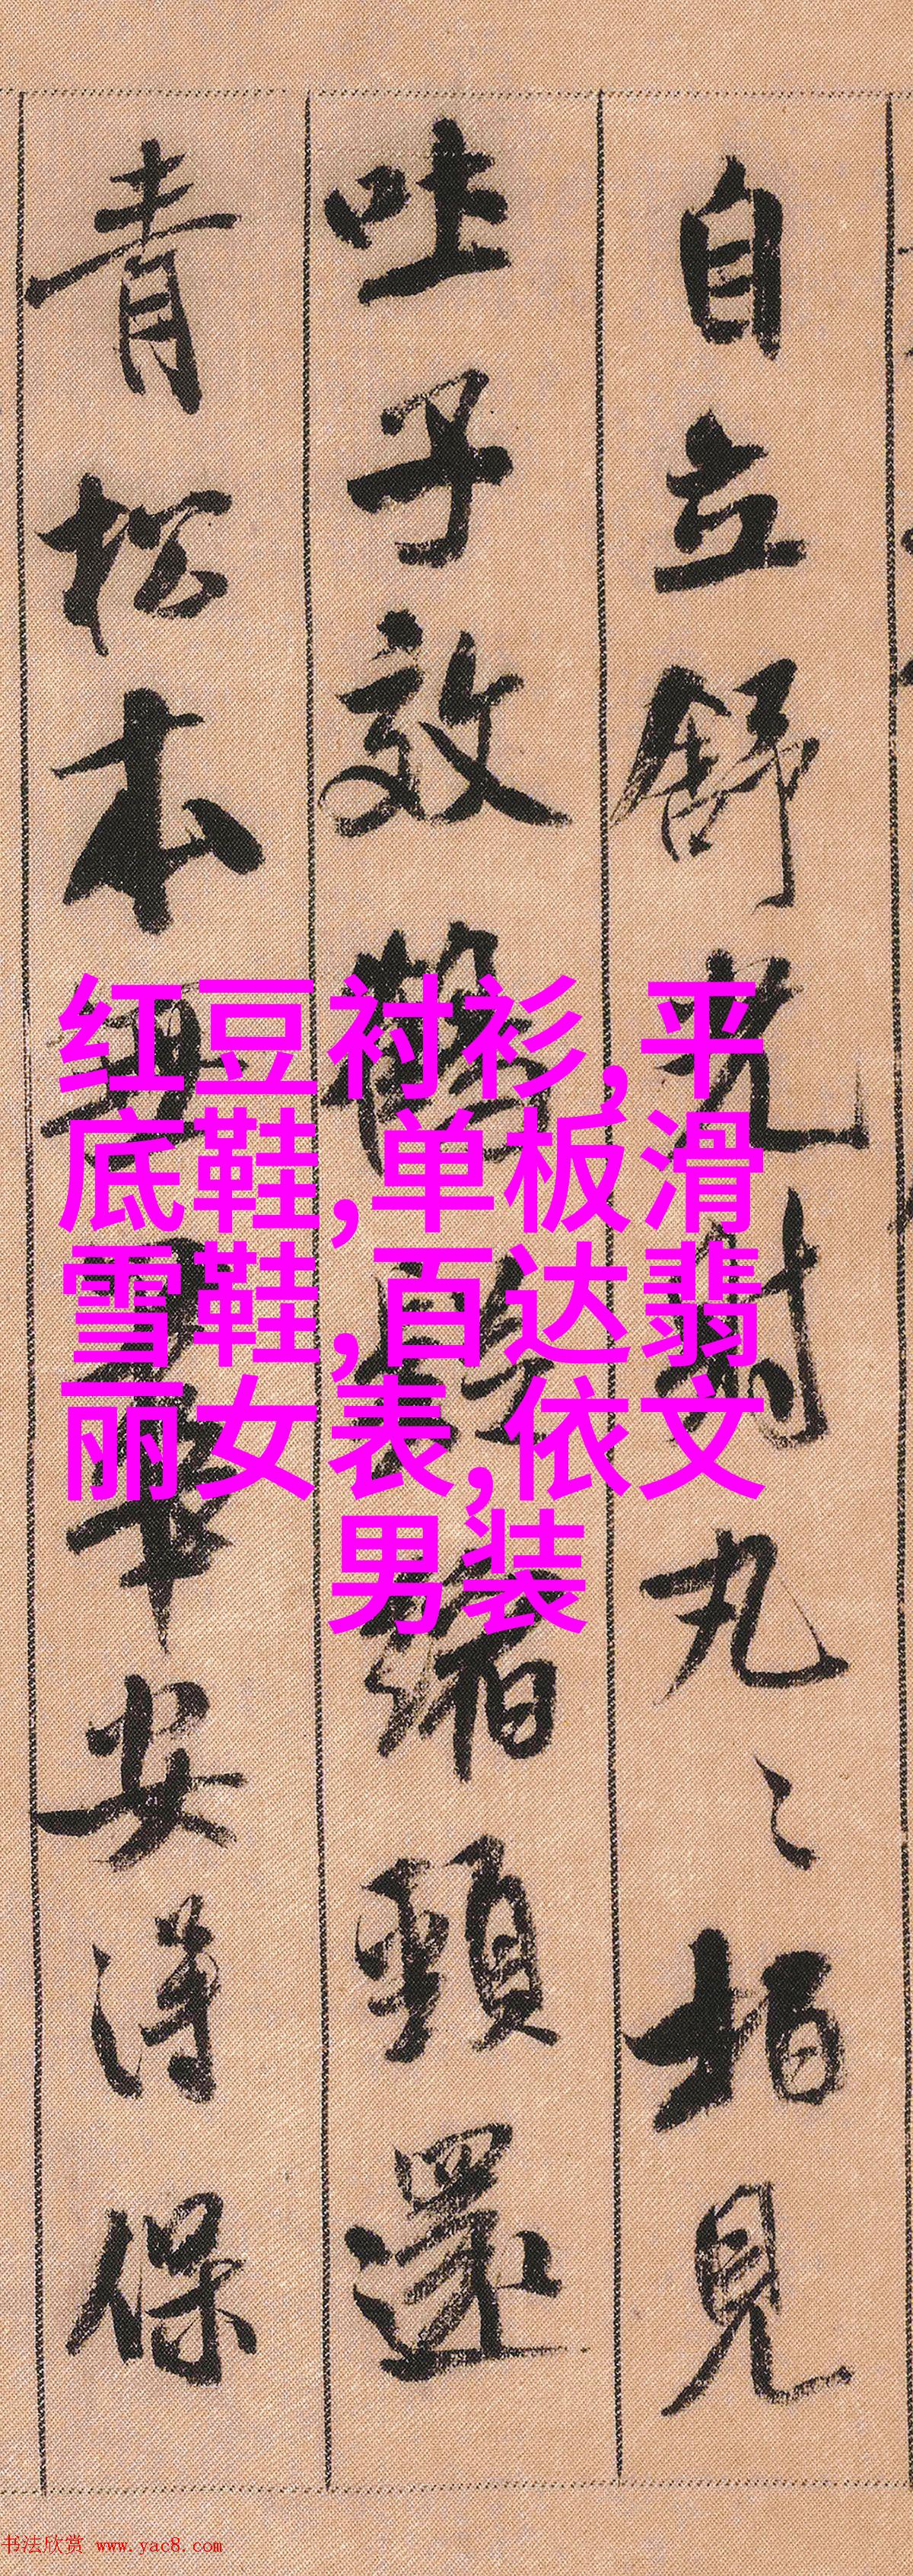 自立舒光射丸〻柏見
吐子效鶴疑縮頸還
青松本無華安得保
红豆衬衫,平
底鞋,单板滑
雪鞋,百达翡
丽女表,依文
男装
书法欣赏 www.yac8.com